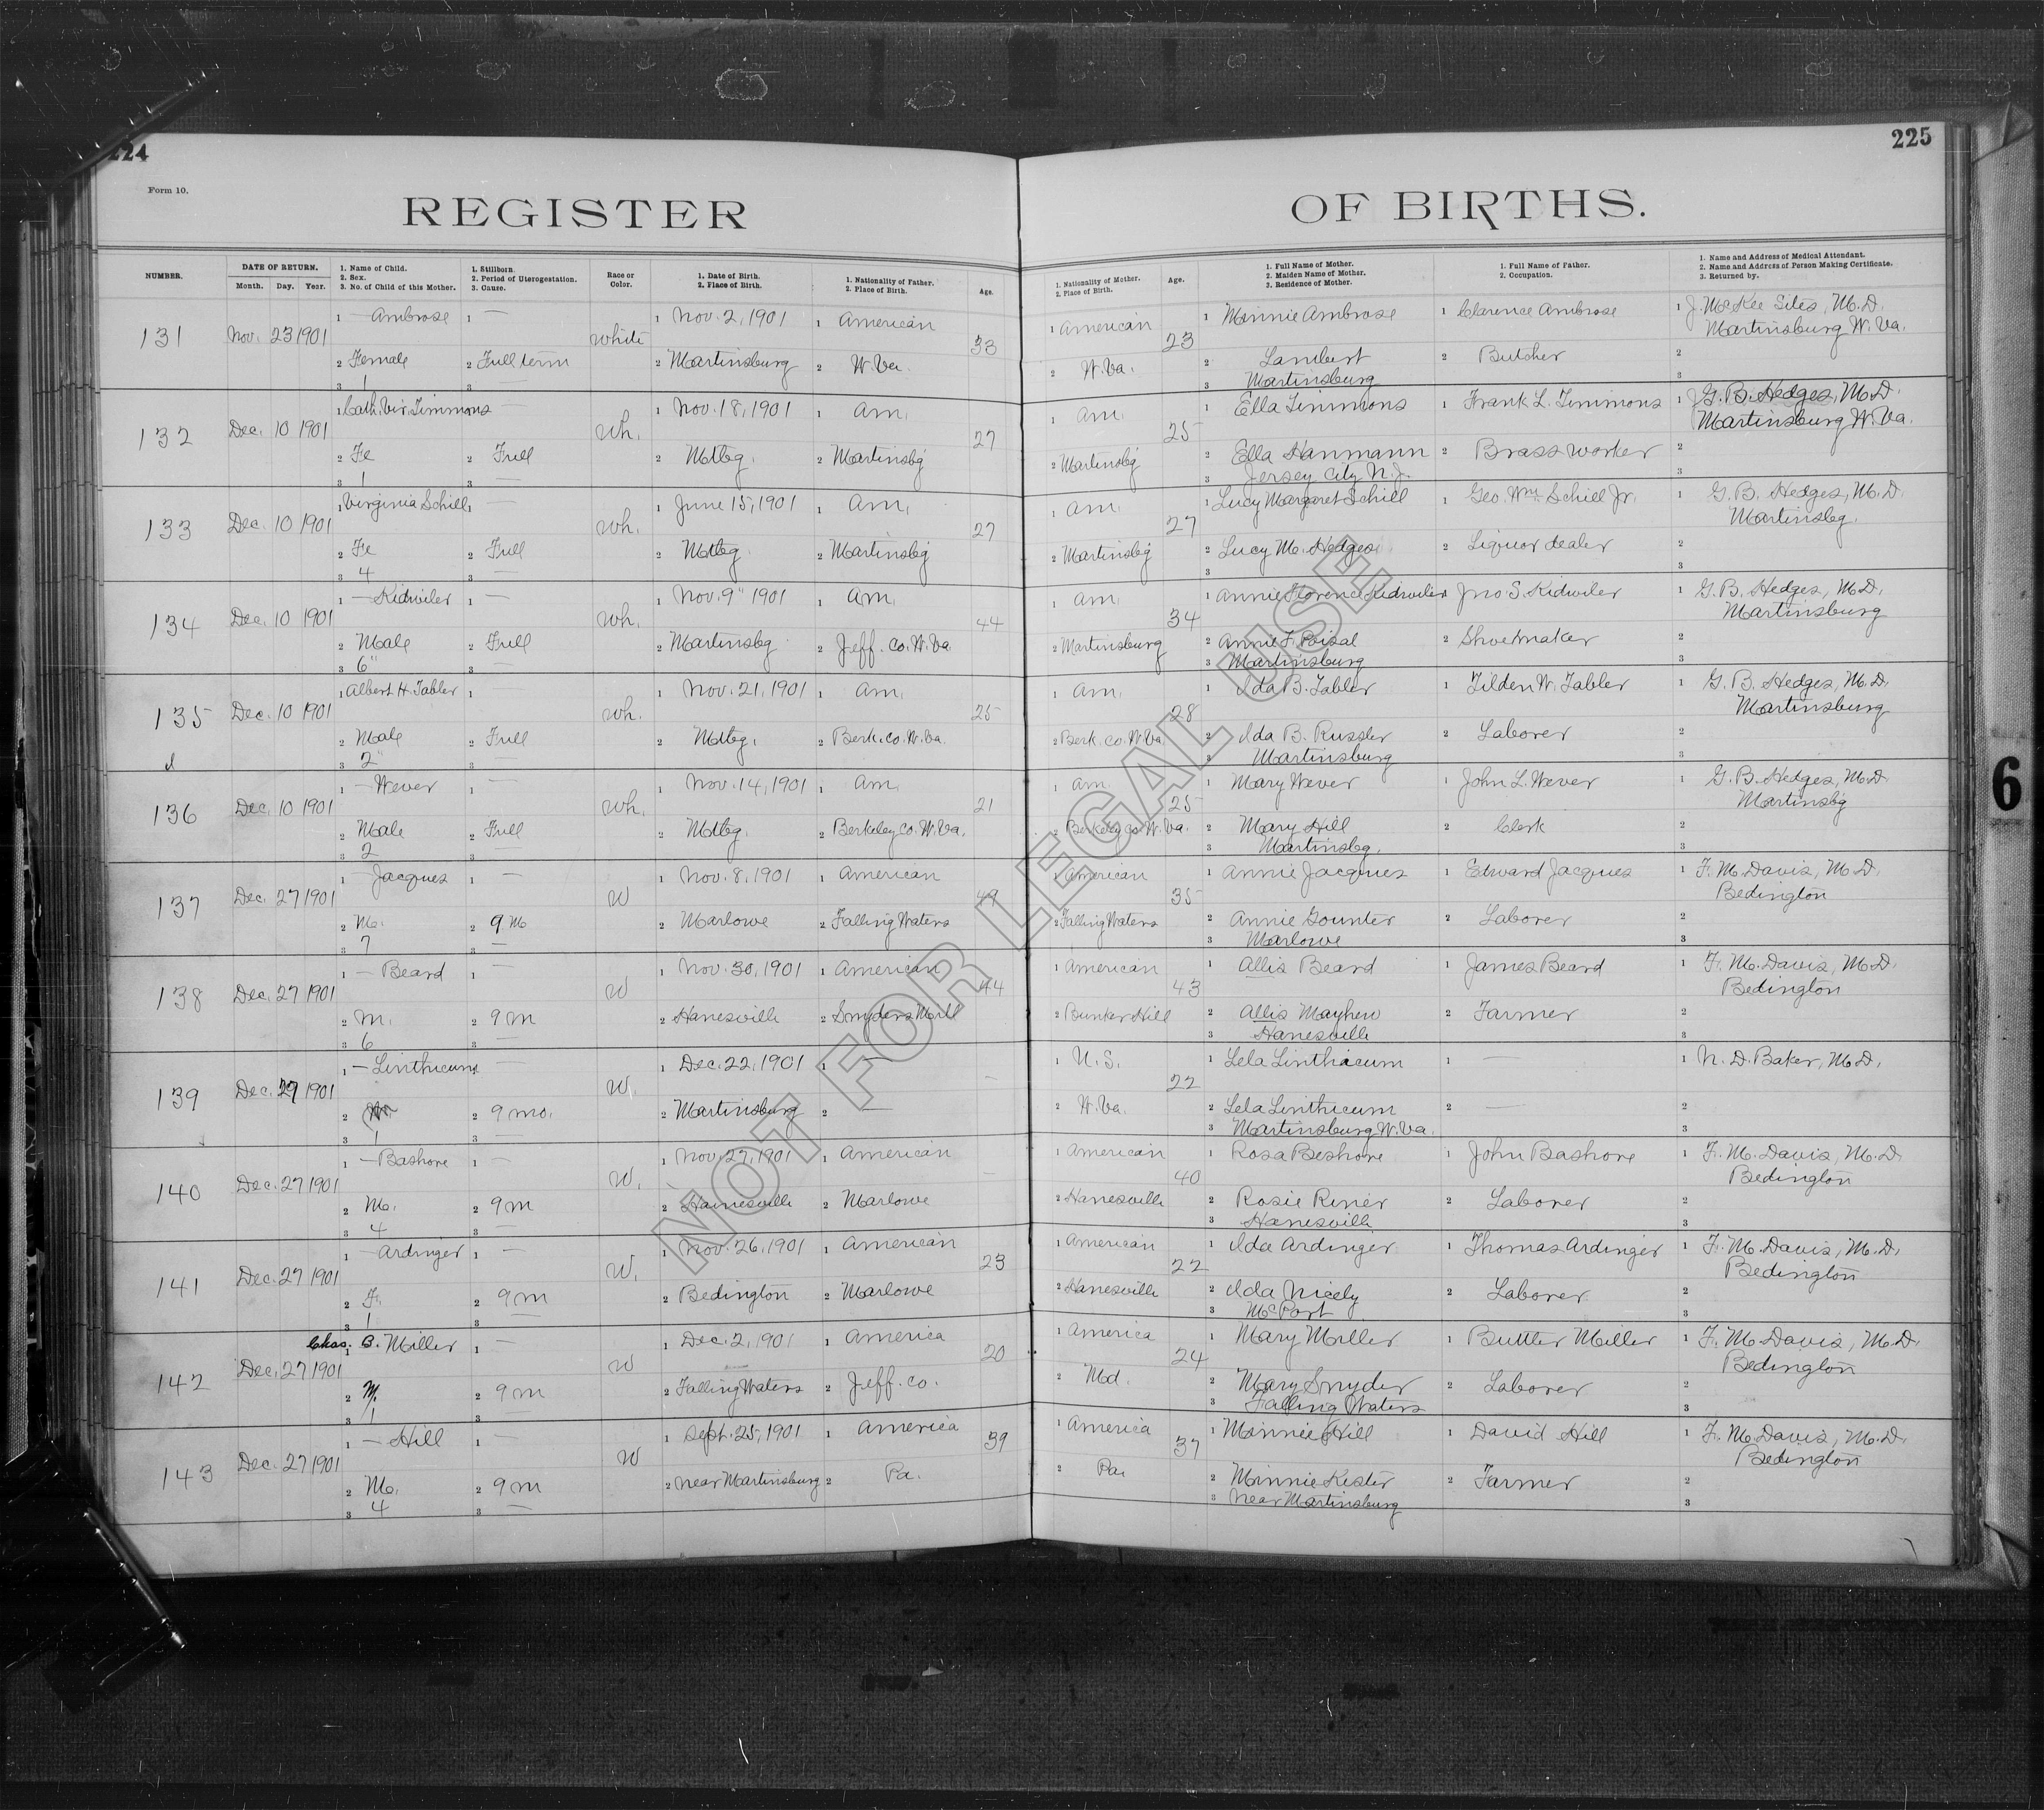 224
225
Form 10.
REGISTER OF BIRTHS.
NUMBER. DATE OF RETURN. Month. Day. Year. 1. Name of Child. 2. Sex. 3. No. of Child of this Mother. 1. Stillborn. 2. Period of Uterogestation. 3. Cause. Race or Color. 1. Date of Birth. 2. Place of Birth. 1. Nationality of Father. 2. Place of Birth. Age. 1. Nationality of Mother. 2. Place of Birth. Age. 1. Full Name of Mother. 2. Maiden Name of Mother. 3. Residence of Mother. 1. Full Name of Father. 2. Occupation. 1. Name and Address of Medical Attendant. 2. Name and Address of Person Making Certificate. 3. Returned by.
1 — Ambrose 1 — 1 Nov. 2, 1901 1 American 1 American 1 Minnie Ambrose 1 Clarence Ambrose 1 J. McKee Sites, M.D.
131 Nov. 23 1901 white 33 23 Martinsburg W. Va.
2 Female 2 Full term 2 Martinsburg 2 W. Va. 2 W. Va. 2 Lambert 2 Butcher 2
3 1 3 — 3 Martinsburg 3
1 Cath. Vir. Timmons — 1 Nov. 18, 1901 1 Am. 1 Am. 1 Ella Timmons 1 Frank L. Timmons 1 G. B. Hedges, M.D.
132 Dec. 10 1901 Wh. 27 25 Martinsburg W. Va.
2 Fe 2 Full 2 Mtbg. 2 Martinsbg 2 Martinsbg 2 Ella Hanmann 2 Brass worker 2
3 1 3 — 3 Jersey City N. J. 3
1 Virginia Schill 1 — 1 June 15, 1901 1 Am. 1 Am. 1 Lucy Margaret Schill 1 Geo. Wm. Schill Jr. 1 G. B. Hedges, M.D.
133 Dec. 10 1901 Wh. 27 27 Martinsbg.
2 Fe 2 Full 2 Mtbg 2 Martinsbg 2 Martinsbg 2 Lucy M. Hedges 2 Liquor dealer 2
3 4 3 — 3 3
1 — Kidwiler 1 — 1 Nov. 9" 1901 1 Am. 1 Am. 1 Annie Florence Kidwiler 1 Jno S. Kidwiler 1 G. B. Hedges, M.D.
134 Dec. 10 1901 Wh. 44 34 Martinsburg
2 Male 2 Full 2 Martinsbg 2 Jeff. Co. W. Va. 2 Martinsburg 2 Annie F. Poisal 2 Shoemaker 2
3 6" 3 — 3 Martinsburg 3
1 Albert H. Tabler 1 — 1 Nov. 21, 1901 1 Am. 1 Am. 1 Ida B. Tabler 1 Tilden W. Tabler 1 G. B. Hedges, M.D.
135 Dec. 10 1901 Wh. 25 28 Martinsburg
2 Male 2 Full 2 Mtbg. 2 Berk. Co. W. Va. 2 Berk. Co. W. Va. 2 Ida B. Russler 2 Laborer 2
3 2" 3 — 3 Martinsburg 3
1 — Wever 1 — 1 Nov. 14, 1901 1 Am. 1 Am. 1 Mary Wever 1 John L. Wever 1 G. B. Hedges, M.D.
136 Dec. 10 1901 Wh. 21 25 Martinsbg
2 Male 2 Full 2 Mtbg. 2 Berkeley Co. W. Va. 2 Berkeley Co. W. Va. 2 Mary Hill 2 Clerk 2
3 2 3 — 3 Martinsbg. 3
1 — Jacques 1 — 1 Nov. 8, 1901 1 American 1 American 1 Annie Jacques 1 Edward Jacques 1 F. M. Davis, M.D.
137 Dec. 27 1901 W 49 35 Bedington
2 M. 2 9 M 2 Marlowe 2 Falling Waters 2 Falling Waters 2 Annie Gounter 2 Laborer 2
3 7 3 — 3 Marlowe 3
1 — Beard 1 — 1 Nov. 30, 1901 1 American 1 American 1 Allis Beard 1 James Beard 1 F. M. Davis, M.D.
138 Dec. 27 1901 W 44 43 Bedington
2 M. 2 9 M 2 Hanesville 2 Snyders Mill 2 Bunker Hill 2 Allis Mayhew 2 Farmer 2
3 6 3 — 3 Hanesville 3
1 — Linthicum — 1 Dec. 22, 1901 1 — 1 U. S. 1 Lela Linthicum 1 — 1 N. D. Baker, M.D.
139 Dec. 29 1901 W. — 22
2 2 9 mo. 2 Martinsburg 2 — 2 W. Va. 2 Lela Linthicum 2 — 2
3 1 3 — 3 Martinsburg W. Va. 3
1 — Bashore 1 — 1 Nov. 27, 1901 1 American 1 American 1 Rosa Beshore 1 John Bashore 1 F. M. Davis, M.D.
140 Dec. 27 1901 W. — 40 Bedington
2 M. 2 9 m 2 Hainesville 2 Marlowe 2 Hanesville 2 Rosie Riner 2 Laborer 2
3 4 3 — 3 Hanesville 3
1 — Ardinger 1 — 1 Nov. 26, 1901 1 American 1 American 1 Ida Ardinger 1 Thomas Ardinger 1 F. M. Davis, M.D.
141 Dec. 27 1901 W. 23 22 Bedington
2 F. 2 9 m 2 Bedington 2 Marlowe 2 Hanesville 2 Ida Nicely 2 Laborer 2
3 1 3 — 3 Mc Port 3
1 Chas. B. Miller 1 — 1 Dec. 2, 1901 1 America 1 America 1 Mary Miller 1 Buttler Miller 1 F. M. Davis, M.D.
142 Dec. 27 1901 W 20 24 Bedington
2 M. 2 9 m 2 Falling Waters 2 Jeff. Co. 2 Md. 2 Mary Snyder 2 Laborer 2
3 1 3 — 3 Falling Waters 3
1 — Hill 1 — 1 Sept. 25, 1901 1 America 1 America 1 Minnie Hill 1 David Hill 1 F. M. Davis, M.D.
143 Dec. 27 1901 W 39 37 Bedington
2 M. 2 9 m 2 near Martinsburg 2 Pa. 2 Pa. 2 Minnie Kister 2 Farmer 2
3 4 3 — 3 near Martinsburg 3
NOT FOR LEGAL USE
6